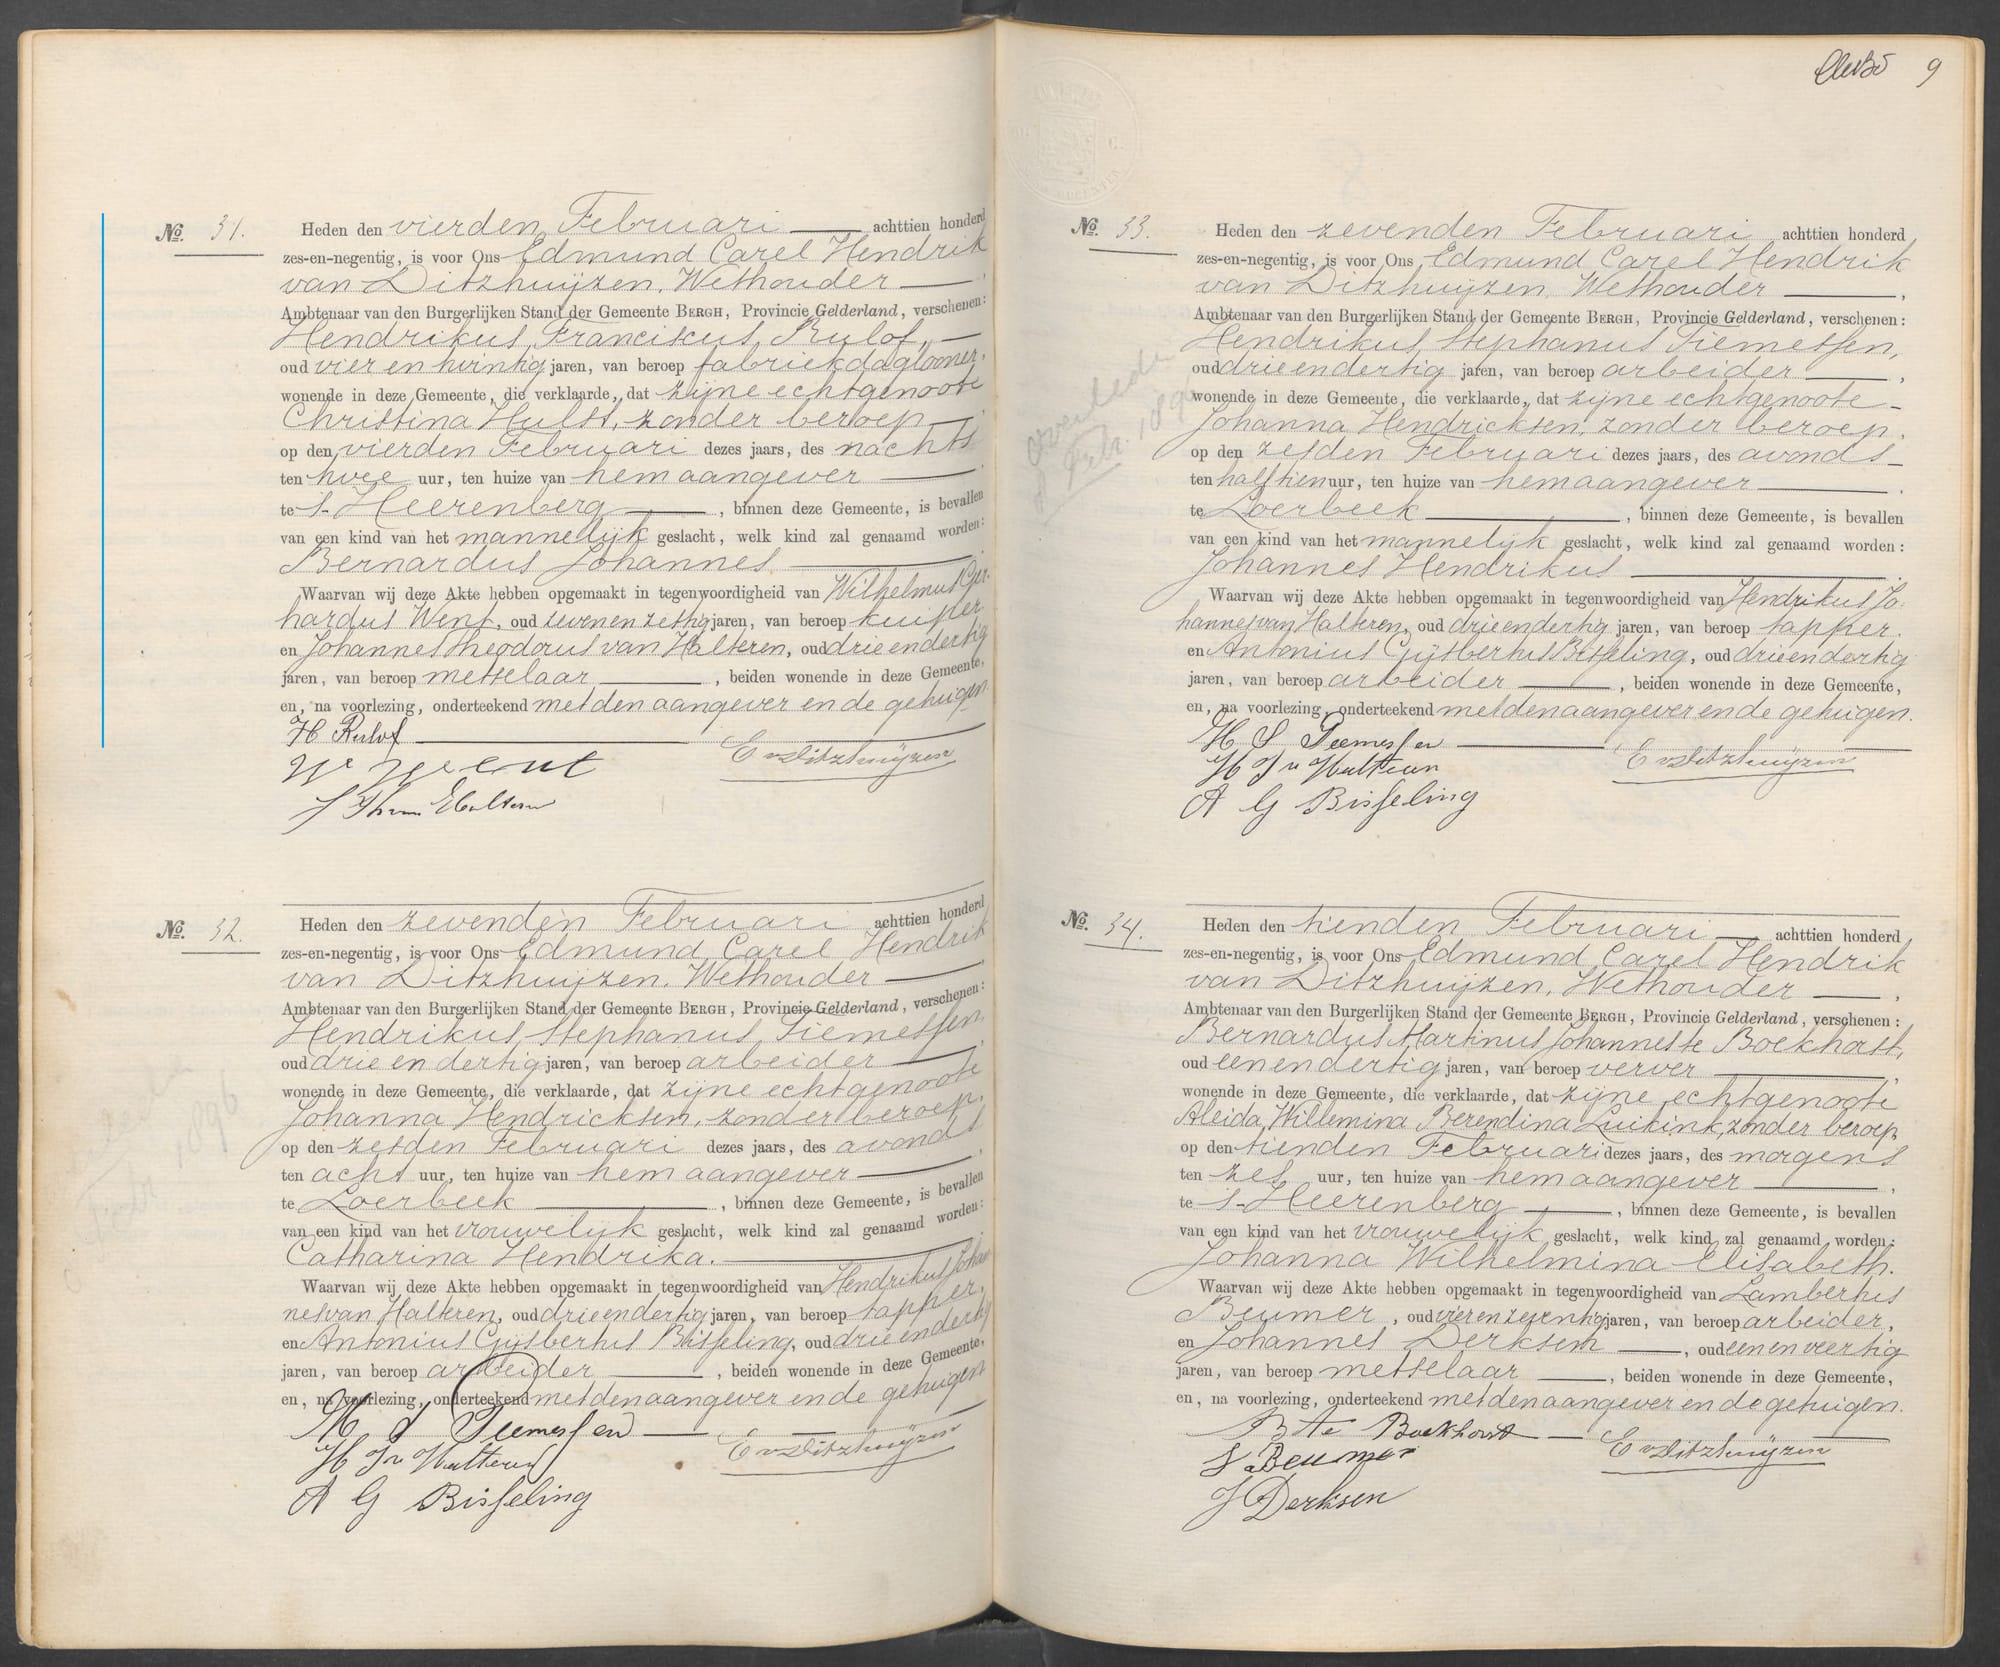 No. 31. Heden den vierden Februari achttien honderd
zes-en-negentig, is voor Ons Edmund Carel Hendrik
van Ditzhuijzen, Wethouder
Ambtenaar van den Burgerlijken Stand der Gemeente BERGH, Provincie Gelderland, verschenen:
Hendrikus Franciscus Rulof,
oud vier en twintig jaren, van beroep fabriekdaglooner,
wonende in deze Gemeente, die verklaarde, dat zijne echtgenoote
Christina Hulst, zonder beroep
op den vierden Februari dezes jaars, des nachts
ten twee uur, ten huize van hem aangever
te s-Heerenberg, binnen deze Gemeente, is bevallen
van een kind van het mannelijk geslacht, welk kind zal genaamd worden:
Bernardus Johannes
Waarvan wij deze Akte hebben opgemaakt in tegenwoordigheid van Wilhelmus Ger-
hardus Went, oud zeven en zestig jaren, van beroep kuiper
en Johannes Theodorus van Halteren, oud drie en dertig
jaren, van beroep metselaar, beiden wonende in deze Gemeente,
en, na voorlezing, onderteekend met den aangever en de getuigen.
H Rulof
E v Ditzhuijzen
W G Went
J Th van Halteren
No. 32. Heden den zevenden Februari achttien honderd
zes-en-negentig, is voor Ons Edmund Carel Hendrik
van Ditzhuijzen, Wethouder
Ambtenaar van den Burgerlijken Stand der Gemeente BERGH, Provincie Gelderland, verschenen:
Hendrikus Stephanus Tiemessen,
oud drie en dertig jaren, van beroep arbeider
wonende in deze Gemeente, die verklaarde, dat zijne echtgenoote
Johanna Hendricksen, zonder beroep,
op den zesden Februari dezes jaars, des avonds
ten acht uur, ten huize van hem aangever
te Loerbeek, binnen deze Gemeente, is bevallen
van een kind van het vrouwelijk geslacht, welk kind zal genaamd worden:
Catharina Hendrika.
Waarvan wij deze Akte hebben opgemaakt in tegenwoordigheid van Hendrikus Johan
nes van Halteren, oud drie en dertig jaren, van beroep tapper,
en Antonius Gijsbertus Bisseling, oud drie en dertig
jaren, van beroep arbeider, beiden wonende in deze Gemeente,
en, na voorlezing, onderteekend met den aangever en de getuigen
1896
H S Teemessen
E v Ditzhuijzen
H J v Halteren
A G Bisseling
9
No. 33. Heden den zevenden Februari achttien honderd
zes-en-negentig, is voor Ons Edmund Carel Hendrik
van Ditzhuijzen, Wethouder
Ambtenaar van den Burgerlijken Stand der Gemeente BERGH, Provincie Gelderland, verschenen:
Hendrikus Stephanus Tiemessen,
oud drie en dertig jaren, van beroep arbeider
wonende in deze Gemeente, die verklaarde, dat zijne echtgenoote
Johanna Hendricksen, zonder beroep.
op den zesden Februari dezes jaars, des avonds
ten half tien uur, ten huize van hem aangever
te Loerbeek, binnen deze Gemeente, is bevallen
van een kind van het mannelijk geslacht, welk kind zal genaamd worden:
Johannes Hendrikus
Waarvan wij deze Akte hebben opgemaakt in tegenwoordigheid van Hendrikus Jo-
hannes van Halteren, oud drie en dertig jaren, van beroep tapper.
en Antonius Gijsbertus Bisseling, oud drie en dertig
jaren, van beroep arbeider, beiden wonende in deze Gemeente,
en, na voorlezing, onderteekend met den aangever en de getuigen.
overleden
Febr. 1896
H S Teemessen
E v Ditzhuijzen
H J v Halteren
A G Bisseling
No. 34. Heden den tienden Februari achttien honderd
zes-en-negentig, is voor Ons Edmund Carel Hendrik
van Ditzhuijzen, Wethouder
Ambtenaar van den Burgerlijken Stand der Gemeente BERGH, Provincie Gelderland, verschenen:
Bernardus Martinus Johannes te Boekhorst,
oud een en dertig jaren, van beroep verver
wonende in deze Gemeente, die verklaarde, dat zijne echtgenoote
Aleida Willemina Berendina Luikink, zonder beroep,
op den tienden Februari dezes jaars, des morgens
ten zes uur, ten huize van hem aangever
te s-Heerenberg, binnen deze Gemeente, is bevallen
van een kind van het vrouwelijk geslacht, welk kind zal genaamd worden:
Johanna Wilhelmina Elisabeth.
Waarvan wij deze Akte hebben opgemaakt in tegenwoordigheid van Lambertus
Beumer, oud vier en zeventig jaren, van beroep arbeider,
en Johannes Derksen, oud een en veertig
jaren, van beroep metselaar, beiden wonende in deze Gemeente,
en, na voorlezing, onderteekend met den aangever en de getuigen.
B te Boekhorst
E v Ditzhuijzen
L Beumer
J Derksen